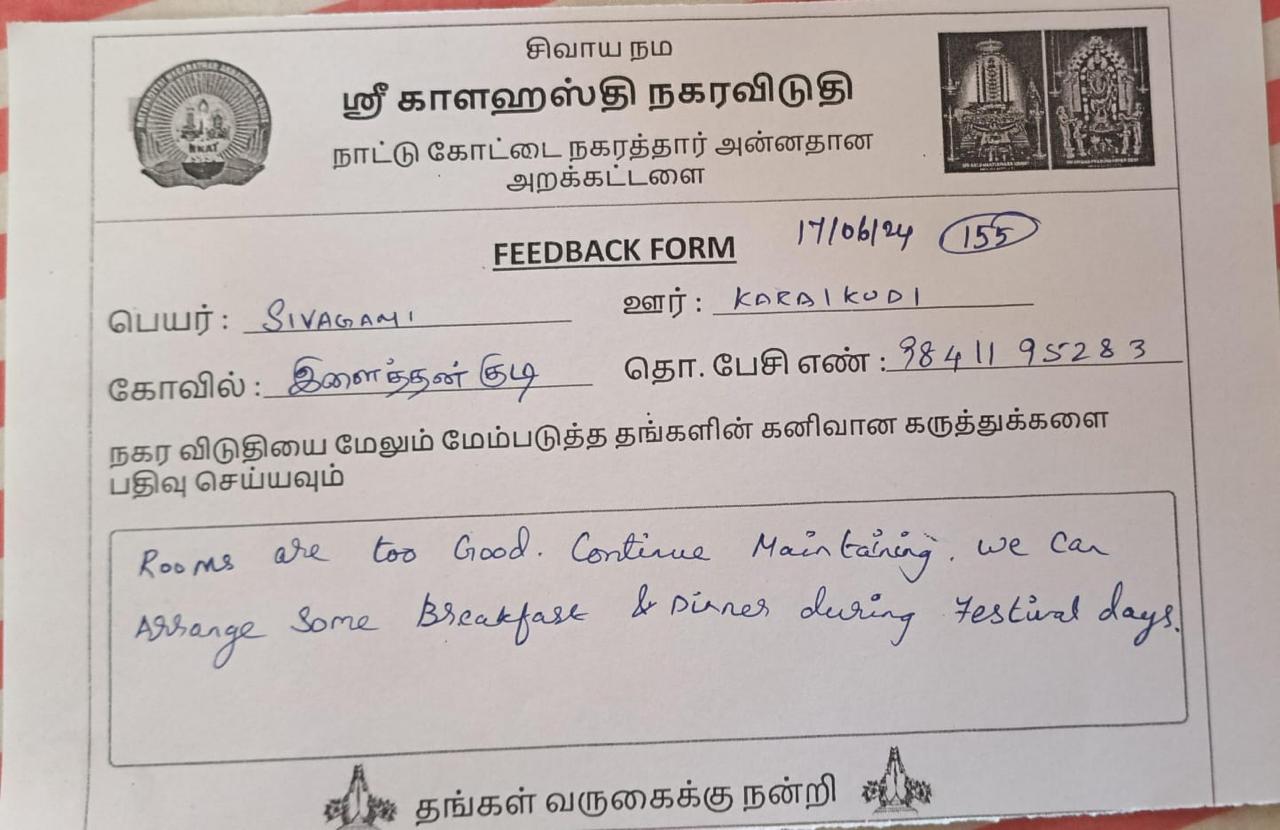 சிவாய நம
ஸ்ரீ காளஹஸ்தி நகரவிடுதி
நாட்டு கோட்டை நகரத்தார் அன்னதான
அறக்கட்டளை
NKAT
FEEDBACK FORM 17/06/24 155
பெயர் : SIVAGAMI ஊர் : KARAIKUDI
கோவில் : இளைத்தன் குடி தொ. பேசி எண் : 98411 95283
நகர விடுதியை மேலும் மேம்படுத்த தங்களின் கனிவான கருத்துக்களை
பதிவு செய்யவும்
Rooms are too Good. Continue Maintaining. We can
Arrange Some Breakfast & Dinner during Festival days.
தங்கள் வருகைக்கு நன்றி